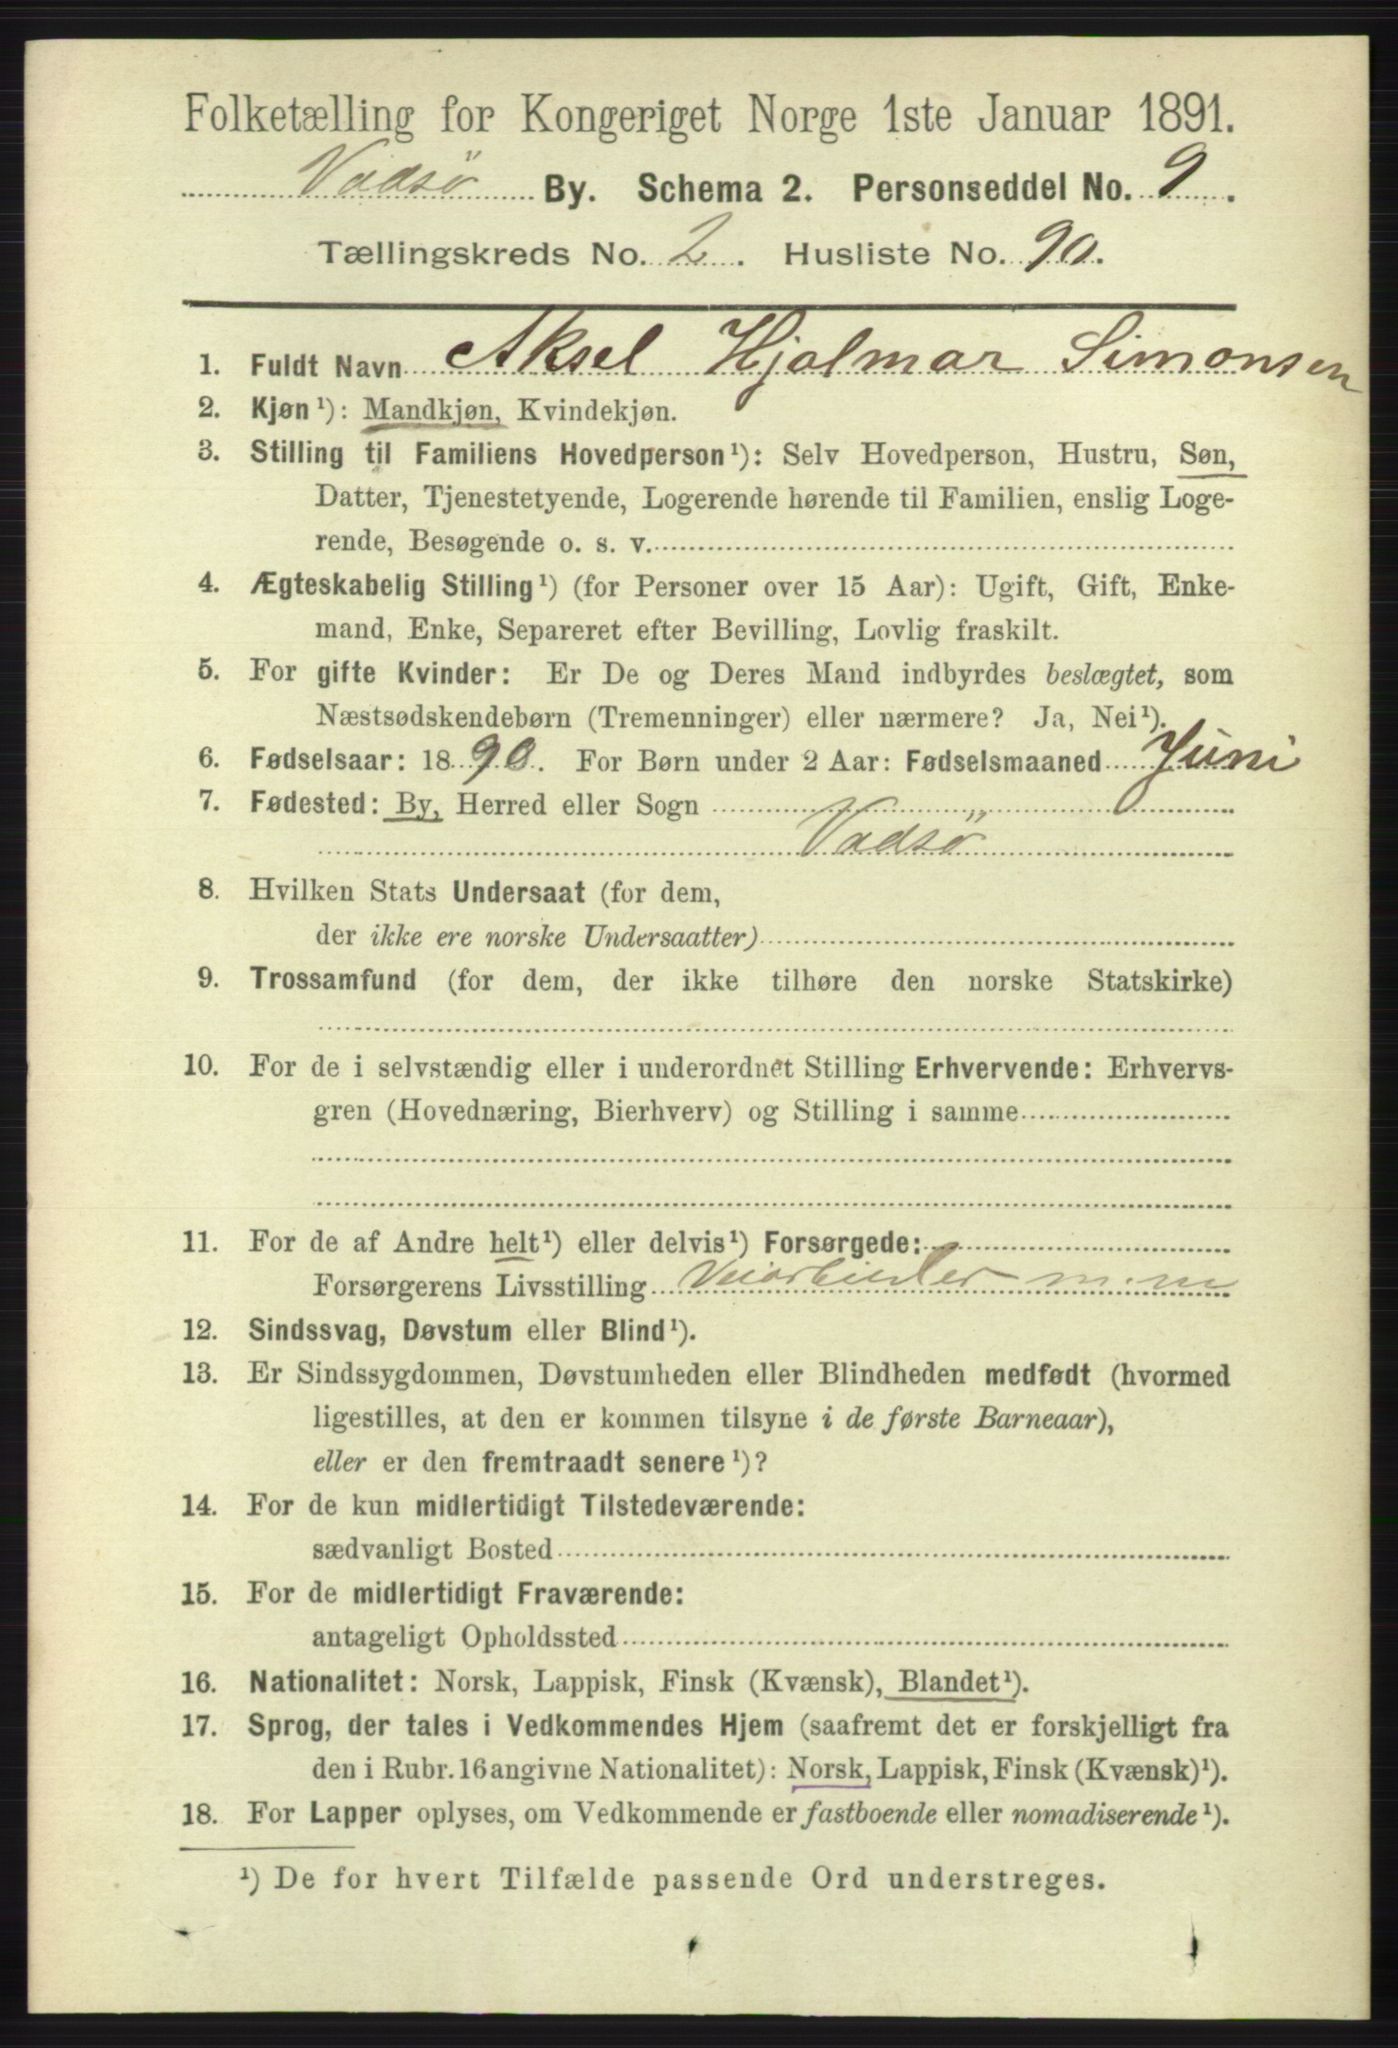 Folketælling for Kongeriget Norge 1ste Januar 1891.
Vadsö By. Schema 2. Personseddel No. 9.
Tællingskreds No. 2. Husliste No. 90.
1. Fuldt Navn Aksel Hjalmar Simonsen
2. Kjøn¹): Mandkjøn, Kvindekjøn.
3. Stilling til Familiens Hovedperson¹): Selv Hovedperson, Hustru, Søn,
Datter, Tjenestetyende, Logerende hørende til Familien, enslig Loge-
rende, Besøgende o. s. v.
4. Ægteskabelig Stilling¹) (for Personer over 15 Aar): Ugift, Gift, Enke-
mand, Enke, Separeret efter Bevilling, Lovlig fraskilt.
5. For gifte Kvinder: Er De og Deres Mand indbyrdes beslægtet, som
Næstsødskendebørn (Tremenninger) eller nærmere? Ja, Nei¹).
6. Fødselsaar: 1890. For Børn under 2 Aar: Fødselsmaaned Juni
7. Fødested: By, Herred eller Sogn
Vadsö
8. Hvilken Stats Undersaat (for dem,
der ikke ere norske Undersaatter)
9. Trossamfund (for dem, der ikke tilhøre den norske Statskirke)
10. For de i selvstændig eller i underordnet Stilling Erhvervende: Erhvervs-
gren (Hovednæring, Bierhverv) og Stilling i samme
11. For de af Andre helt¹) eller delvis¹) Forsørgede:
Forsørgerens Livsstilling Veiarbeider m.m
12. Sindssvag, Døvstum eller Blind¹).
13. Er Sindssygdommen, Døvstumheden eller Blindheden medfødt (hvormed
ligestilles, at den er kommen tilsyne i de første Barneaar),
eller er den fremtraadt senere¹)?
14. For de kun midlertidigt Tilstedeværende:
sædvanligt Bosted
15. For de midlertidigt Fraværende:
antageligt Opholdssted
16. Nationalitet: Norsk, Lappisk, Finsk (Kvænsk), Blandet¹).
17. Sprog, der tales i Vedkommendes Hjem (saafremt det er forskjelligt fra
den i Rubr. 16 angivne Nationalitet): Norsk, Lappisk, Finsk (Kvænsk)¹).
18. For Lapper oplyses, om Vedkommende er fastboende eller nomadiserende¹).
¹) De for hvert Tilfælde passende Ord understreges.